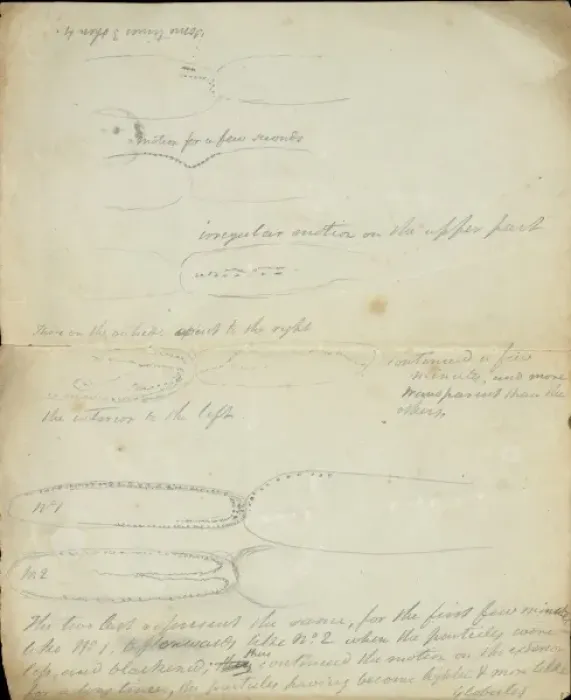 motion for a few seconds
irregular motion on the upper part
then on the outside apart to the right
continued a few
minutes, and more
transparent than the
others
the interior to the left
No 1
No. 2
The two last represent the same, for the first few minutes
like No 1, afterwards like No 2 when the particles were
less, and blackened, thus continued the motion on the
for a long time, the particles having become lighter & more like
globules